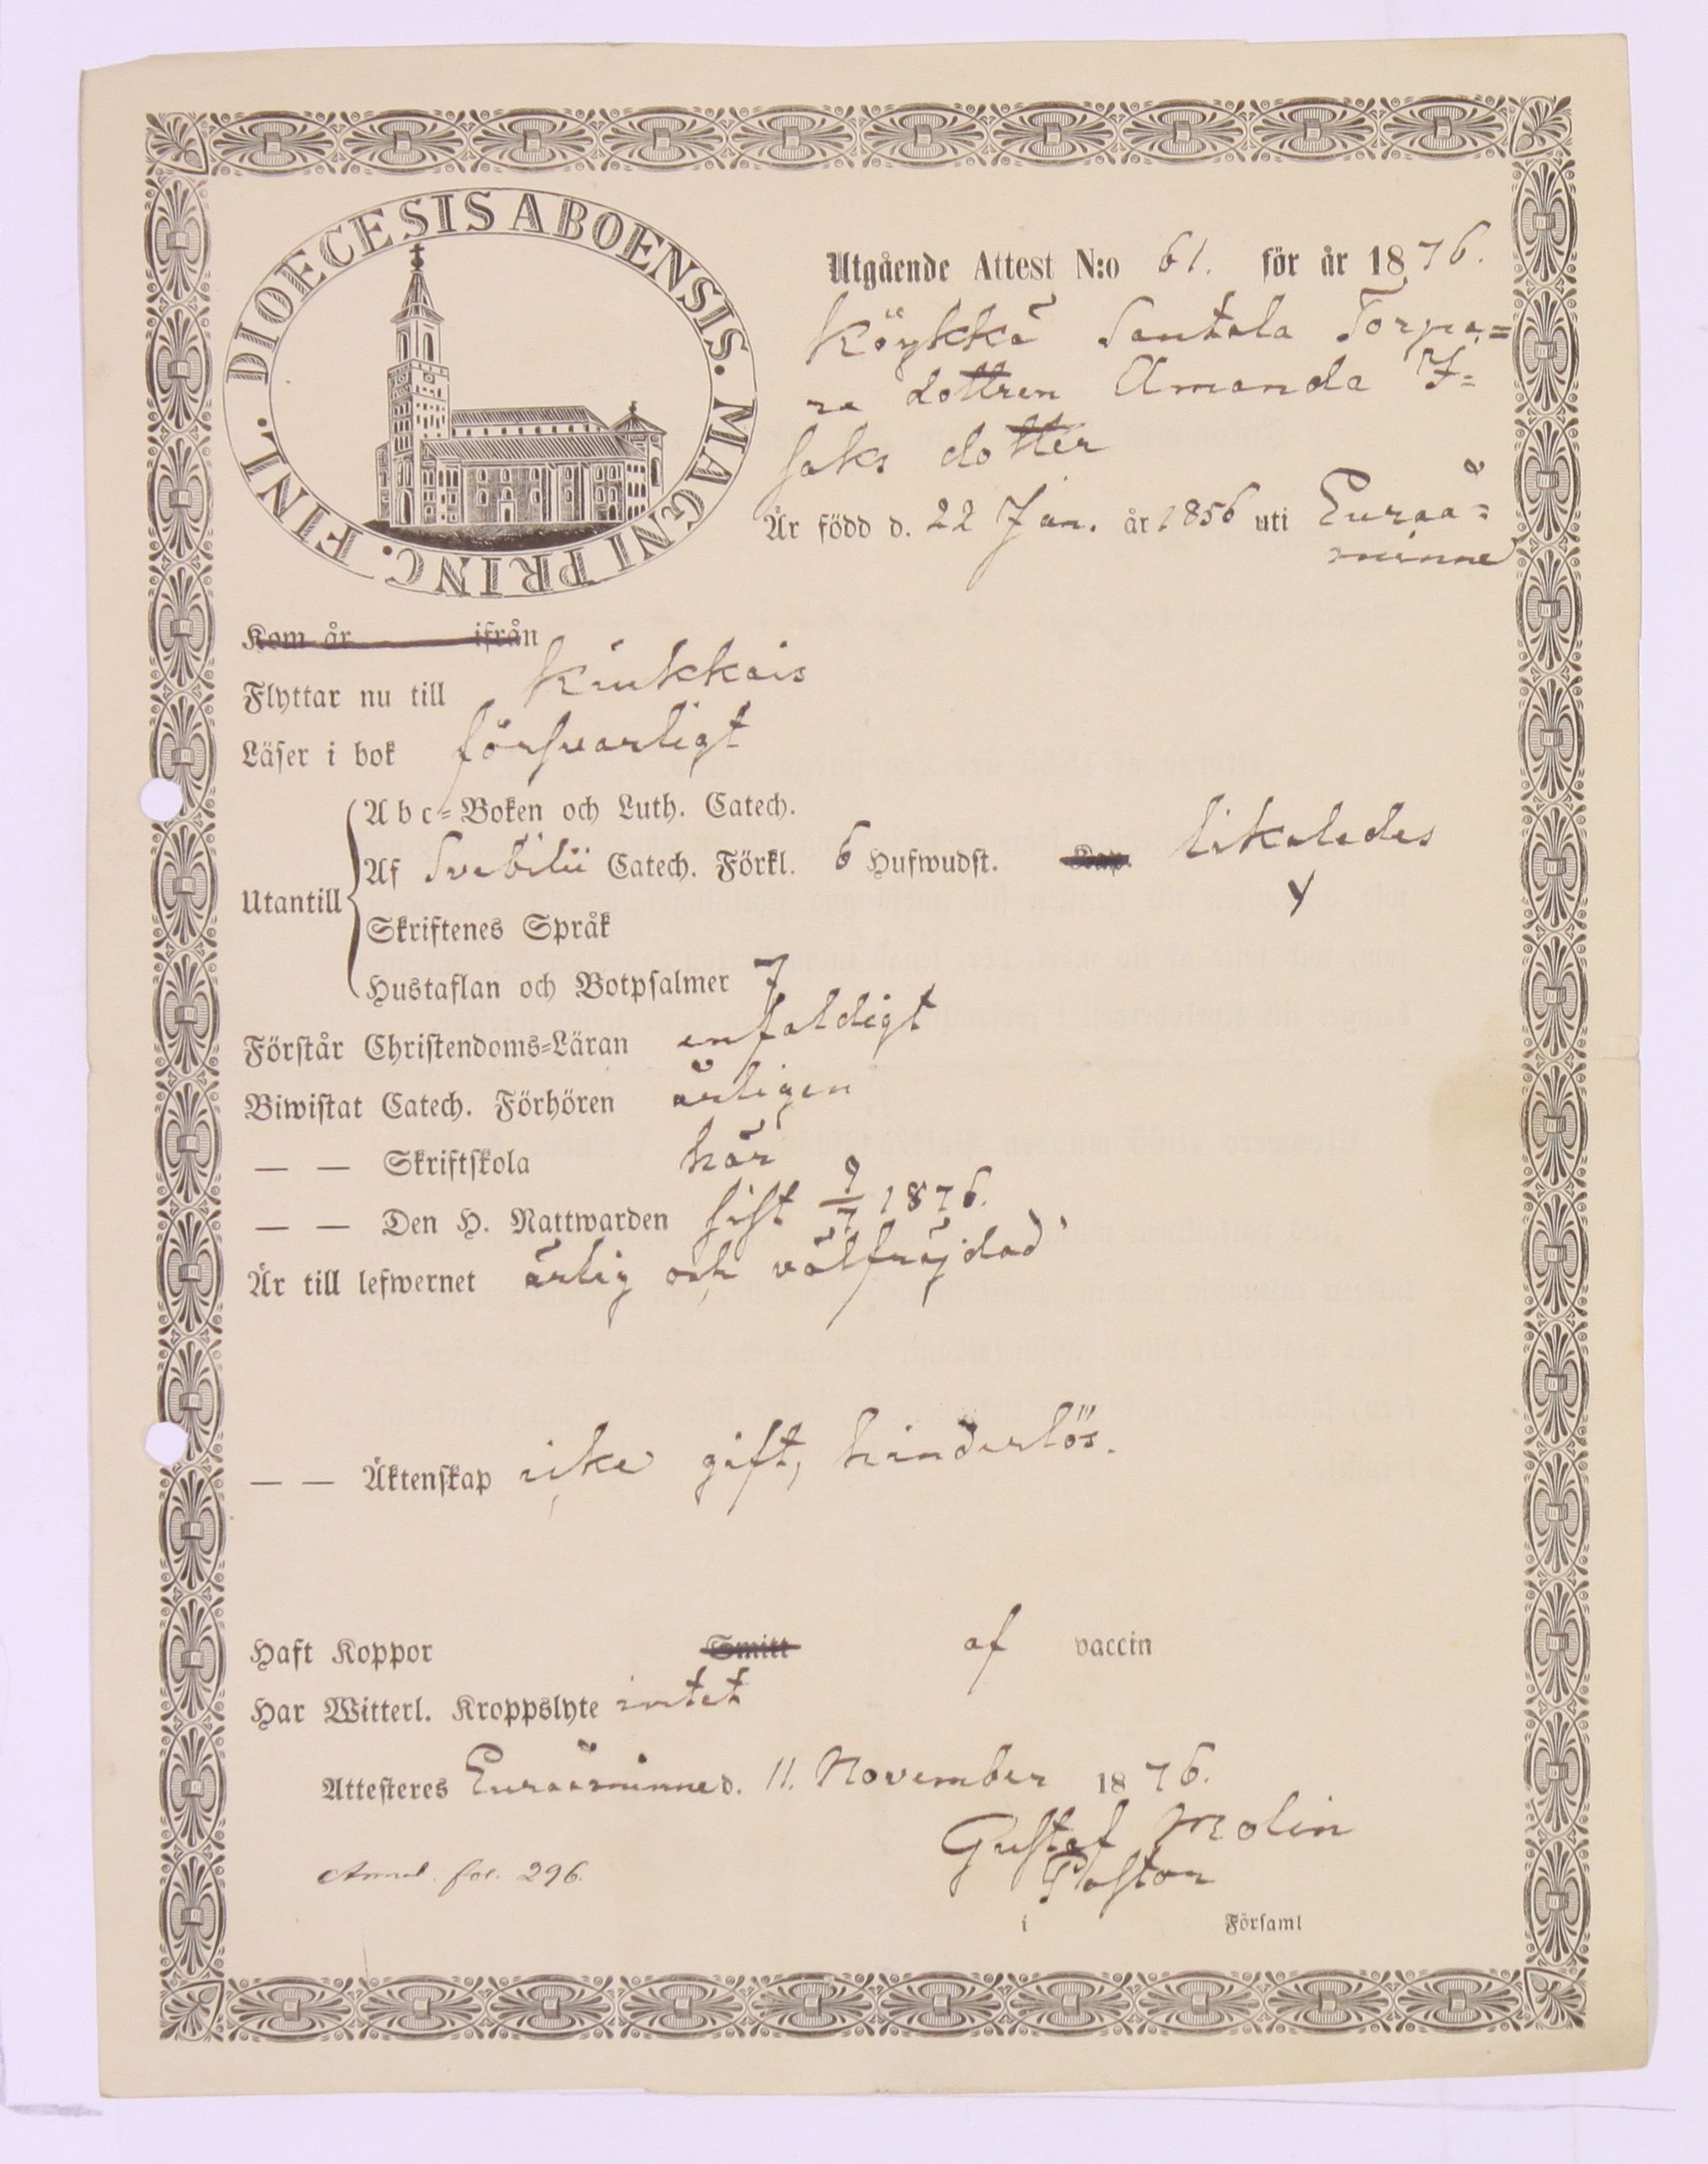 DIOECESIS ABOENSIS. MAGNI PRINC. FINL.
Utgående Attest N:o 61. för år 1876.
Köykkä Santala Torpa=
re dottren Amanda I=
saks dotter
Är född d. 22 Jan. år 1856 uti Euraå=
minne
Kom år ifrån
Flyttar nu till Kiukkais
Läser i bok försvarligt
Abc=Boken och Luth. Catech.
Af Svebilii Catech. Förkl. 6 Hufwudst. Kap. likaledes
Utantill
Skriftenes Språk
Hustaflan och Botpsalmer 7
Förstår Christendoms=Läran enfaldigt
Biwistat Catech. Förhören årligen
— — Skriftskola här
— — Den H. Nattwarden sist 9/7 1876.
Är till lefwernet ärlig och välfräjdad
— — Äktenskap icke gift, hinderlös.
Haft Koppor Smitt af vaccin
Har Witterl. Kroppslyte intet
Attesteres Euraåminne d. 11. November 1876.
Gustaf Molin
Pastor
fol. 296.
i Församl